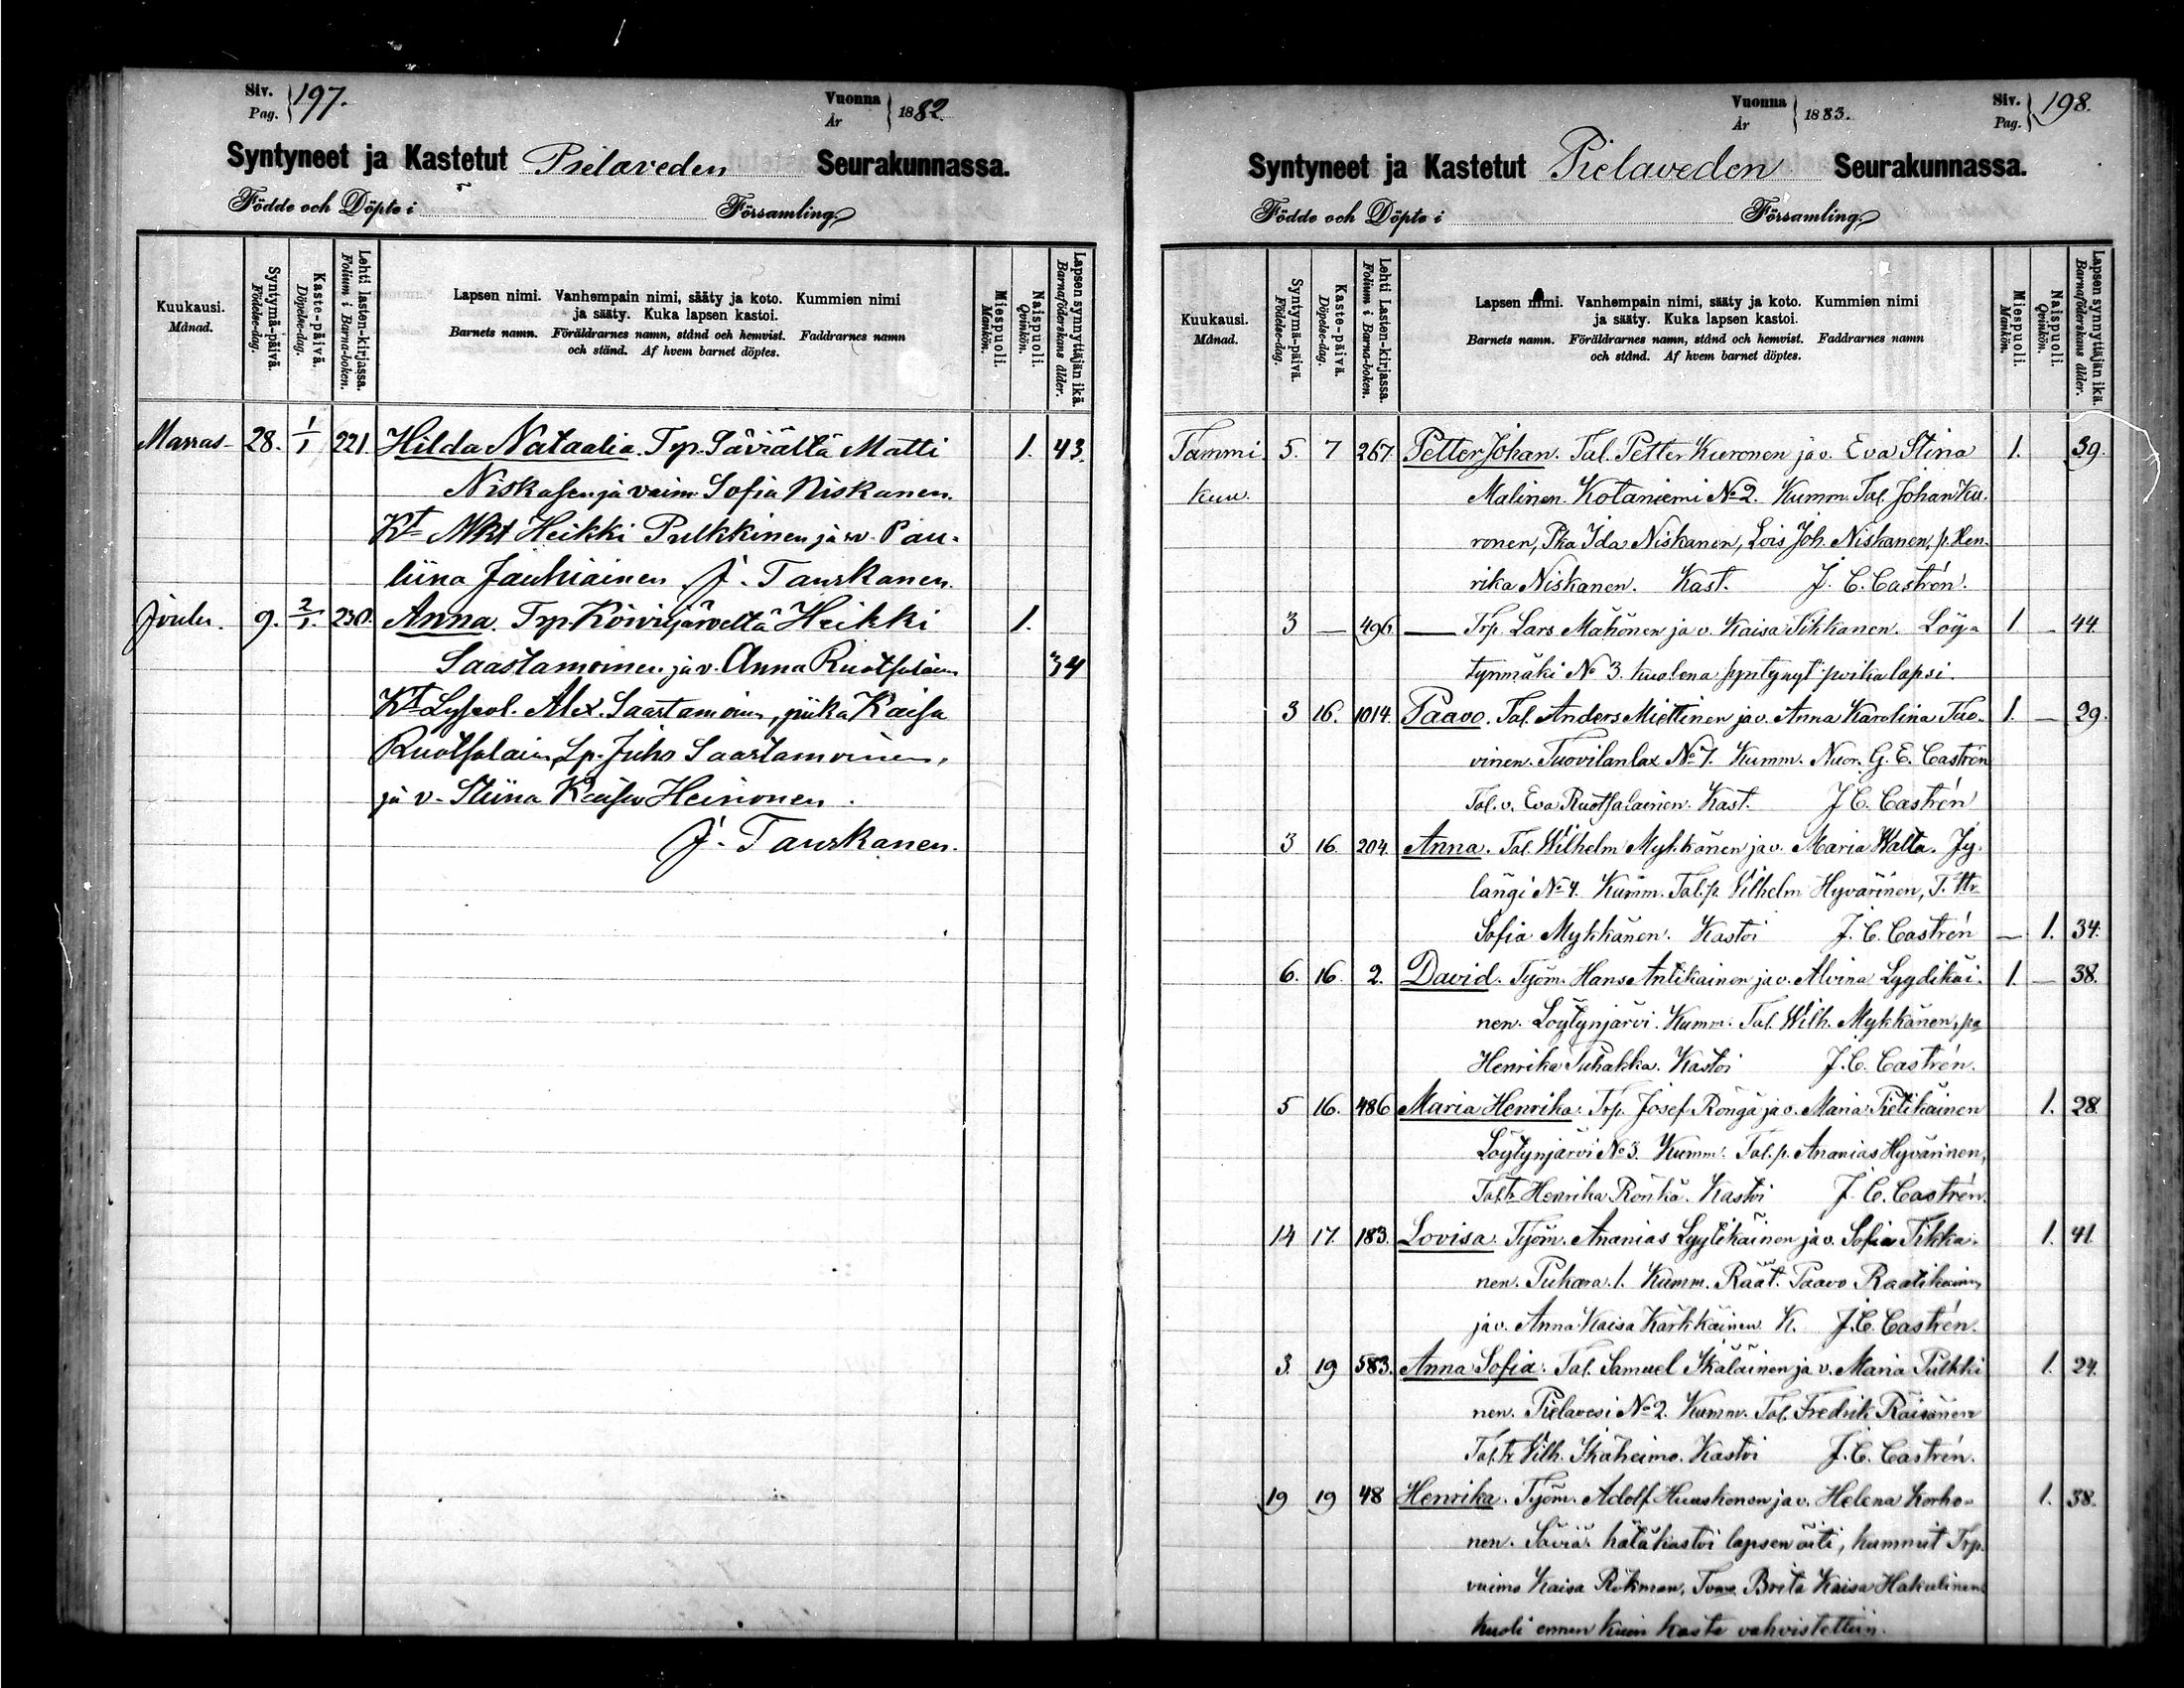 Siv.
Pag. } 197.
Vuonna
År } 1882.
Syntyneet ja Kastetut Pielaveden Seurakunnassa.
Födde och Döpte i Församling.
Kuukausi.
Månad.
Syntymä-päivä.
Födelse-dag.
Kaste-päivä.
Döpelse-dag.
Lehti lasten-kirjassa.
Folium i Barna-boken.
Lapsen nimi. Vanhempain nimi, sääty ja koto. Kummien nimi
ja sääty. Kuka lapsen kastoi.
Barnets namn. Föräldrarnes namn, stånd och hemvist. Faddrarnes namn
och stånd. Af hvem barnet döptes.
Miespuoli.
Mankön.
Naispuoli.
Qvinkön.
Lapsen synnyttäjän ikä.
Barnaföderskans ålder.
Marras- 28. 1/1 221. Hilda Nataalia. Trp. Säviältä Matti 1. 43.
Niskasen ja vaim. Sofia Niskanen.
Kt Mkt Heikki Pulkkinen ja v. Pau-
liina Jauhiainen J. Tauskanen.
Joulu. 9. 2/1. 230. Anna. Trp. Koivujärveltä Heikki 1.
Saastamoinen ja v. Anna Ruotsalain 34
Kt Alex. Saastamoin, piika Kaisa
Ruotsalain, Lp. Juho Saastamoinen,
ja v. Stiina Kaisa Heinonen.
J. Tauskanen.
Vuonna
År } 1883.
Siv.
Pag. } 198.
Syntyneet ja Kastetut Pielaveden Seurakunnassa.
Födde och Döpte i Församling.
Kuukausi.
Månad.
Syntymä-päivä.
Födelse-dag.
Kaste-päivä.
Döpelse-dag.
Lehti Lasten-kirjassa.
Folium i Barna-boken.
Lapsen nimi. Vanhempain nimi, sääty ja koto. Kummien nimi
ja sääty. Kuka lapsen kastoi.
Barnets namn. Föräldrarnes namn, stånd och hemvist. Faddrarnes namn
och stånd. Af hvem barnet döptes.
Miespuoli.
Mankön.
Naispuoli.
Qvinkön.
Lapsen synnyttäjän ikä.
Barnaföderskans ålder.
Tammi 5. 7 267. Petter Johan. Tal. Petter Kuronen ja v. Eva Stina 1. 39.
kuu. Malinen. Kotaniemi No 2. Kumm. Tal. Johan Ku-
ronen, Pka Ida Niskanen, Lois Joh. Niskanen, p. Hen-
rika Niskanen. Kast. J. C. Castrén.
3 — 496 — Trp. Lars Mähönen ja v. Kaisa Tikkanen. Löy- 1 — 44.
tynmäki No 3. kuolena syntynyt poikalapsi.
3 16. 1014. Paavo. Tal. Anders Miettinen ja v. Anna Karolina Tuo- 1. — 29.
vinen. Tuovilanlax No 7. Kumm. Nuor. G. E. Castrén
Tal. v. Eva Ruotsalainen. Kast. J. C. Castrén
3 16. 204. Anna. Tal. Wilhelm Mykkänen ja v. Maria Walta. Jy-
längi No 4. Kumm. Tal. p. Vilhelm Hyvärinen, T. ttr
Sofia Mykkänen. Kastoi J. C. Castrén — 1. 34.
6. 16 2. David. Työm. Hans Antikainen ja v. Alvina Lyydikäi- 1. — 38.
nen. Löytynjärvi. Kumm. Tal. Wilh. Mykkänen, pa
Henrika Puhakka. Kastoi J. C. Castrén.
5 16. 486 Maria Henrika. Trp. Josef Röngä ja v. Maria Pietikäinen 1. 28.
Löytynjärvi No 3. Kumm. Tal. p. Ananias Hyvärinen,
Tal. tr Henrika Rönkä. Kastoi J. C. Castrén.
14 17. 183. Lovisa. Työm. Ananias Lyytikäinen ja v. Sofia Tikka- 1. 41.
nen. Puhara. 1. Kumm. Räät. Paavo Raatikainen
ja v. Anna Kaisa Kärkkäinen K. J. C. Castrén.
3. 19 583. Anna Sofia. Tal. Samuel Ikäläinen ja v. Maria Pulkki 1. 24.
nen. Pielavesi No 2. Kumm. Tal. Fredrik Räisänen
Tal. tr Vilh. Ikäheimo. Kastoi J. C. Castrén.
19 19 48 Henrika. Työm. Adolf Huuskonen ja v. Helena Korho- 1. 38.
nen. Säviä. hätäkastoi lapsen äiti, kummit Trp.
vaimo Kaisa Rökman, Brita Kaisa Hakulinen
kuoli ennen kuin kaste vahvistettiin.